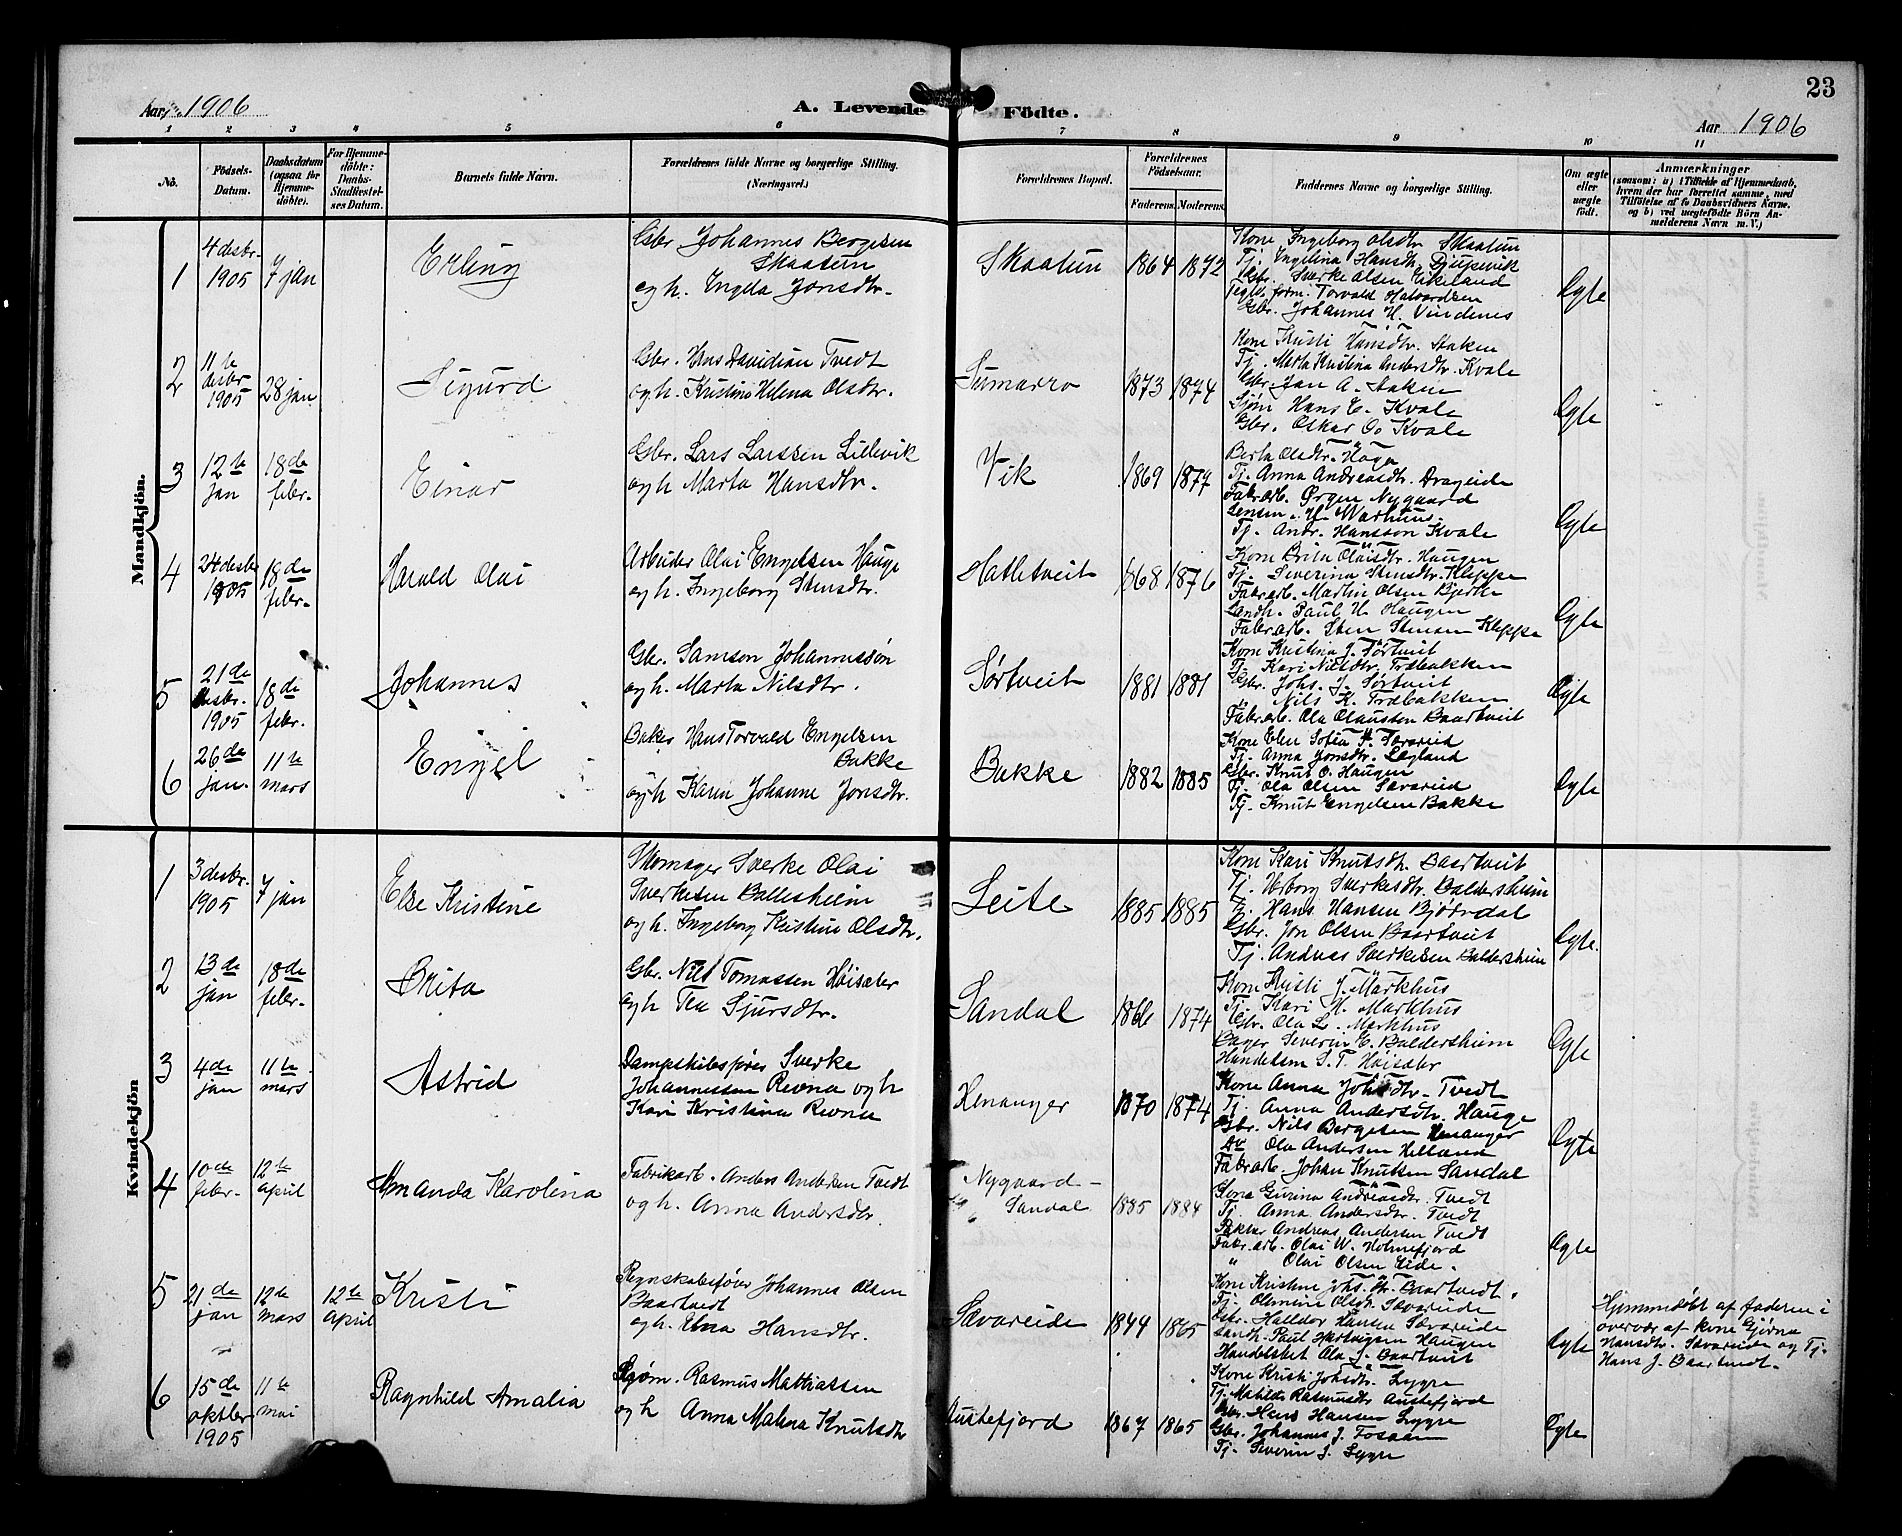 23
Aar 1906 A. Levende Födte. Aar 1906
1 2 3 4 5 6 7 8 9 10 11
No. Födsels-Datum. Daabsdatum (ogsaa for Hjemme-döbte). For Hjemme-döbte: Daabs-Stadfæstelses Datum. Barnets fulde Navn. Forældrenes fulde Navne og borgerlige Stilling. (Næringsvei.) Forældrenes Bopæl. Forældrenes Födselsaar. Faderens. Moderens. Faddernes Navne og borgerlige Stilling. Om ægte eller uægte födt. Anmærkninger
(saasom: a) i Tilfælde af Hjemmedaab,
hvem der har forrettet samme, med
Tilföielse af to Daabsvidners Navne,
og b) ved uægtefödte Börn An-
melderens Navn m. V.)
Mandkjön.
1 4 desbr. 1905 7 jan Erling
Gbr Johannes Bergesen
Skaatun
og h. Ingda Jonsdtr.
Skaatun 1864 1872
Kone Ingeborg Olsdtr Skaatun
Tj. Ingelina Hansdtr. Djupevik
Gbr. Sverke Olsen Eikeland
Teglv. form. Torvald Halvardsen
Gbr. Johannes H. Vindenes
Ægte
2 11te desbr 1905 28 jan Sigurd
Gbr. Hans Davidian Tvedt
og h. Kristine Helena Olsdtr.
1873 1874
Kone Kristi Hansdtr. Staken
Tj. Marta Kristina Andersdtr. Kvale
Gbr. Jan A. Staken
Sjøm Hans E. Kvale
Gbr. Oskar O. Kvale
Ægte
3 12te jan 18de febr. Einar
Gbr. Lars Larssen Lillevik
og h. Marta Hansdtr.
Vik 1869 1877
Berta Olsdtr. Haga
Tj. Anna Andreasdtr. Drageide
Fabr.arb. Ørgen Nygaard
Lensm. H. Warhuus.
Tj. Andr. Hansson Kvale
Ægte
4 24 desbr 1905 18de febr. Harald Olai
Arbeider Olai Engelsen Hauge
og h. Ingeborg Stensdtr.
Hatletveit 1868 1876
Kone Brita Olaisdtr. Haugen
Tj. Severina Stensdtr. Kleppe
Fabr.arb. Martin Olsen Bjerke
Landh. Paul H. Haugen
Fabr.arb. Sten Stensen Kleppe
Ægte
5 21de desbr. 1905 18de febr. Johannes
Gbr. Samson Johannessøn
og h. Marta Nilsdtr.
Sørtveit 1881 1881
Kone Kristina J. Sørtveit
Tj. Kari Nilsdtr. Træbakken
Gbr. Johs. J. Sørtveit
" Nils K. Træbakken
Fabr.arb. Ola Olaussen Baartveit
Ægte
6 26de jan. 11te mars Engel
Baker Hans Torvald Engelsen
Bakke
og h Karen Johanne Jonsdtr.
Bakke 1882 1885
Kone Elen Sofia P. Sævareid
Tj. Anna Jonsdtr. Lægland
Gbr. Knut O. Haugen
Tj. Ola Olsen Sævareid
Tj. Knut Engelsen Bakke
Ægte
Kvindekjön
1 3 desbr. 1905 7 jan Else Kristine
Skomager Sverke Olai
Sverkesen Ballesheim
og h. Ingeborg Kristine Olsdtr.
Leite 1885 1885
Kone Kari Knutsdtr. Baartveit
Tj. Herborg Sverkesdtr. Baldersheim
Tj. Hans Hansen Bjørndal
Gbr. Jon Olsen Baartveit
Tj. Andreas Sverkesen Baldersheim
Ægte.
2 13de jan 18de febr. Brita
Gbr. Nils Tomassen Høisæter
og h Tea Sjursdtr.
Sandal 1866 1874
Kone Kristi J. Markhus
Tj. Kari H. Markhus
Gbr. Ola L. Markhus
Bager Severin E. Baldersheim
Handelsm S. T. Høisæter
Ægte
3 4de jan 11te mars Astrid
Dampskibsfører Sverke
Johannessen Revna og h
Kari Kristina Revna
Henanger 1870 1874
Kone Anna Johsdtr. Tvedt
Tj. Anna Andersdtr. Hauge
Gbr. Nils Bergesen Henanger
Ola Andersen Helland
Fabr.arb. Johan Knutsen Sandal
Ægte
4 10de febr. 12te april Amanda Karolina
Fabrikarb. Anders Andersen Tvedt
og h. Anna Andersdtr.
Nygaard -
Sandal 1885 1884
Kone Gurina Andreasdtr. Tvedt
Tj. Anna Andersdtr. Tvedt
Andreas Andersen Tvedt
Fabr.arb. Olai W. Holmefjord
" Olai Olsen Eide.
Ægte
5 21de jan 12te mars 12te april Kristi
Regnskabsfører Johannes Olsen
Baartvedt
og h. Elna Hansdtr.
Sævareide 1844 1865
Kone Kristine Johs. Baartvedt.
Tj. Olemine Olsdtr. Sævareide
Gbr. Halldor Hansen Sævareide
Landh. Paul Hartvigsen Haugen
Handelsbet Ola J. Baartveit
Ægte
Hjemmedøbt af faderen i
overvær af kone Gjørna
Hansdtr. Sævareide og Tj.
Hans J. Baartvedt.
6 15de oktbr 1905 11te mai Ragnhild Amalia
Sjøm. Rasmus Mattiassen
og h Anna Malena Knutsdtr
Austefjord 1867 1865
Kone Kristi Johsdtr. Lygre
Tj. Matilda Rasmusdtr Austefjord
Gbr. Hans Hansen Lygre
Gbr. Johannes J. Fosaan
Tj. Severin J. Lygre
Ægte